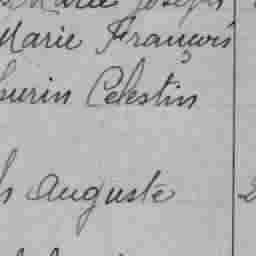 Marie Joseph
Marie François
urin Celestin
Auguste 2